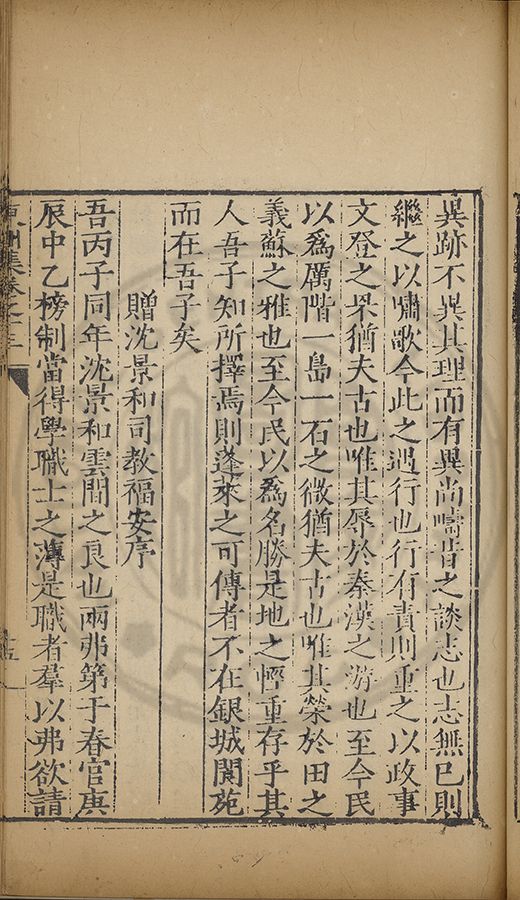 異跡不異其理而有異尚疇昔之談志也志無已則
繼之以嘯歌今此之遇行也行有責則重之以政事
文登之杲猶夫古也唯其辱於秦漢之游也至今民
以爲厲階一島一石之微猶夫古也唯其榮於田之
義蘇之雅也至今民以爲名勝是地之輕重存乎其
人吾子知所擇焉則蓬萊之可傳者不在銀城閬苑
而在吾子矣
贈沈景和司教福安序
吾丙子同年沈景和雲間之良也兩弗第于春官庚
辰中乙榜制當得學職士之薄是職者羣以弗欲請
集卷之十三